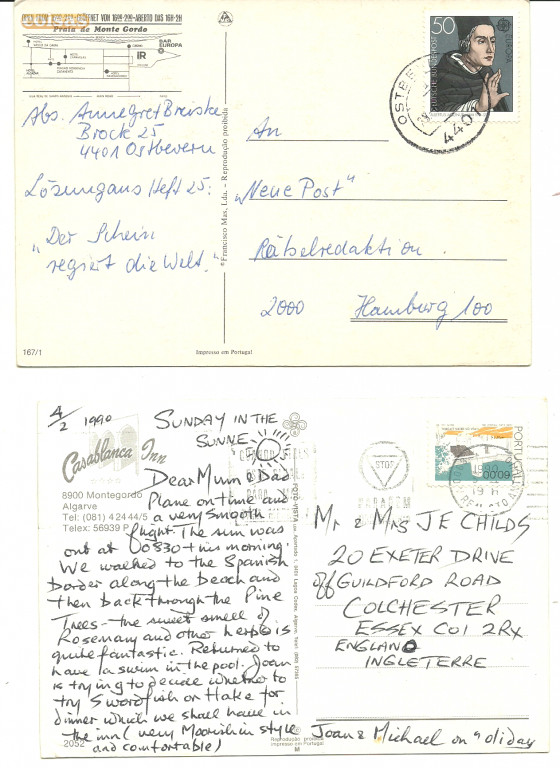 Praia de Monte Gordo
BAR
EUROPA
IR
Abs. Annegret Breiske
Brock 25
4401 Ostbevern
Lösung aus Heft 25:
„Der Schein
regiert die Welt."
167/1
© Francisco Mas, Lda. - Reprodução proibida
Impresso em Portugal
50
DEUTSCHE BUNDESPOST
4401
An
„Neue Post"
Rätselredaktion
2000 Hamburg 100
4/2 1990
Casablanca Inn
8900 Montegordo
Algarve
Tel: (081) 4 24 44/5
Telex: 56939 P
SUNDAY IN THE
SUNNE
Dear Mum & Dad
Plane on time and
a very smooth
flight. The sun was
out at 00830 this morning.
We walked to the Spanish
border along the beach and
then back through the Pine
Trees - the sweet smell of
Rosemary and other herbs is
quite fantastic. Returned to
have a swim in the pool. Joan
is trying to decide whether to
try Swordfish or Hake for
dinner which we shall have in
the inn (very Moorish in style
and comfortable)
2052
Reprodução proibida
Impresso em Portugal
STOP
PORTUGAL
1990
Mr & Mrs J E CHILDS
20 EXETER DRIVE
off GUILDFORD ROAD
COLCHESTER
ESSEX CO1 2RX
ENGLAND
INGLETERRE
Joan & Michael on "oliday